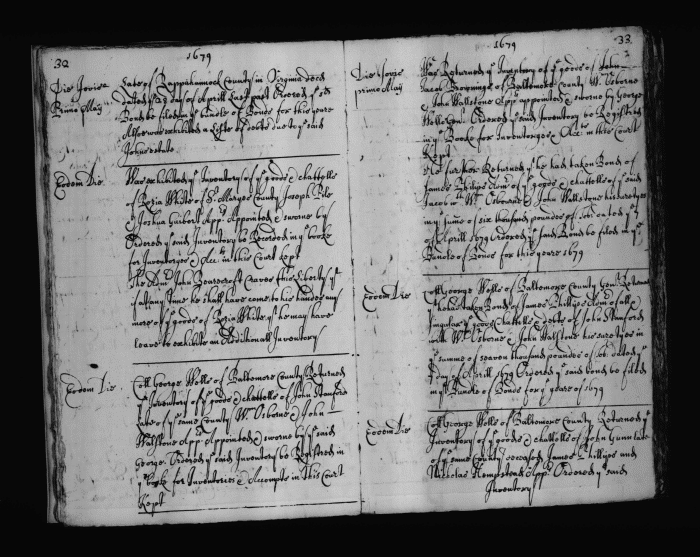 32
1679
Die Jovis
Primo May
Late of Rappahannock County in Virginia decd
dated day of Aprill Last past Ordered yt sd
Bond be filed in ye bundle of Bonds for this yeare
Also was exhibited a Liste of debts due to ye said
Johns estate
Eodem Die
Was exhibited ye Inventory of ye goods & chattells
of Rozia White of St Maryes County Joseph
& Joshua Guibert Appr Appointed & sworne by
Ordered ye said Inventory be Recorded in ye booke
for Inventoryes & Acc in this Court kept
The Admr John Bearecroft Craves this Liberty yt
if att any time he shall have come to his hands any
more of ye goods of Rozia White yt he may have
leave to exhibite an Additionall Inventory
Eodem Die
Coll George Wells of Baltemore County Returned
ye Inventory of ye goods & chattells of John Stanford
late of ye same County Wm Osborne & John
Wallstone App Appointed & sworne by ye said
George. Ordered ye said Inventory be Registred in
ye booke for Inventories & Accompts in this Court
Kept
33
1679
Die Jovis
primo May
Was Returned ye Inventory of ye goods of John
Jacob of Baltemore County Wm Osborne
& John Wallstone App appointed & sworne by George
Wells Ordered ye said Inventory be Registred
in ye Booke for Inventoryes & Acc in this Court
Kept
He further Returned yt he had taken Bond of
James Phillips Admr of ye goods & chattells of ye said
Jacob wth Wm Osborne & John Wallstone his suretyes
in ye summe of six thousand pounds of tob dated ye
of Aprill 1679 Ordered ye said Bond be filed in ye
Bundle of Bonds for this yeare 1679
Eodem Die
Coll George Wells of Baltemore County Gent Returned
yt he had taken Bond of James Phillips Admr of all &
singular ye goods Chattells & debts of John Stanford
with Wm Osborne & John Wallstone his suretyes in
ye summe of seaven thousand pounds of tob. dated ye
day of Aprill 1679 Ordered ye said bond be filed
in ye Bundle of Bonds for ye yeare of 1679
Eodem Die
Coll George Wells of Baltemore County Returned ye
Inventory of ye goods & chattells of John Gunn late
of ye same County deceased James Phillips and
Nicholas Hempstead Appr Ordered ye said
Inventory